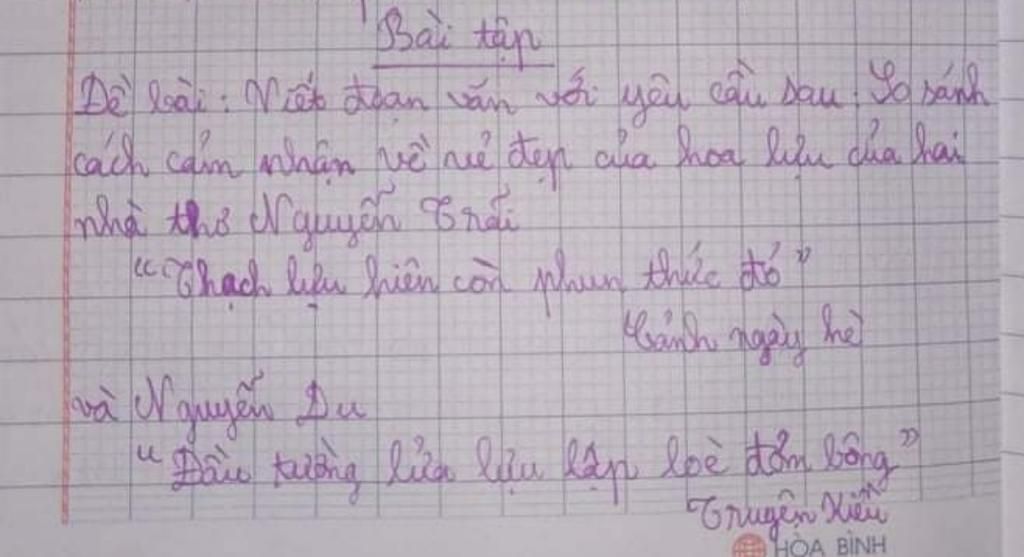 Bài tập
Đề bài: Viết đoạn văn với yêu cầu sau: So sánh
cách cảm nhận về vẻ đẹp của hoa lựu của hai
nhà thơ Nguyễn Trãi
"Thạch lựu hiên còn phun thức đỏ"
Cảnh ngày hè
và Nguyễn Du
"Đầu tường lửa lựu lập loè đơm bông"
Truyện Kiều
HÒA BÌNH